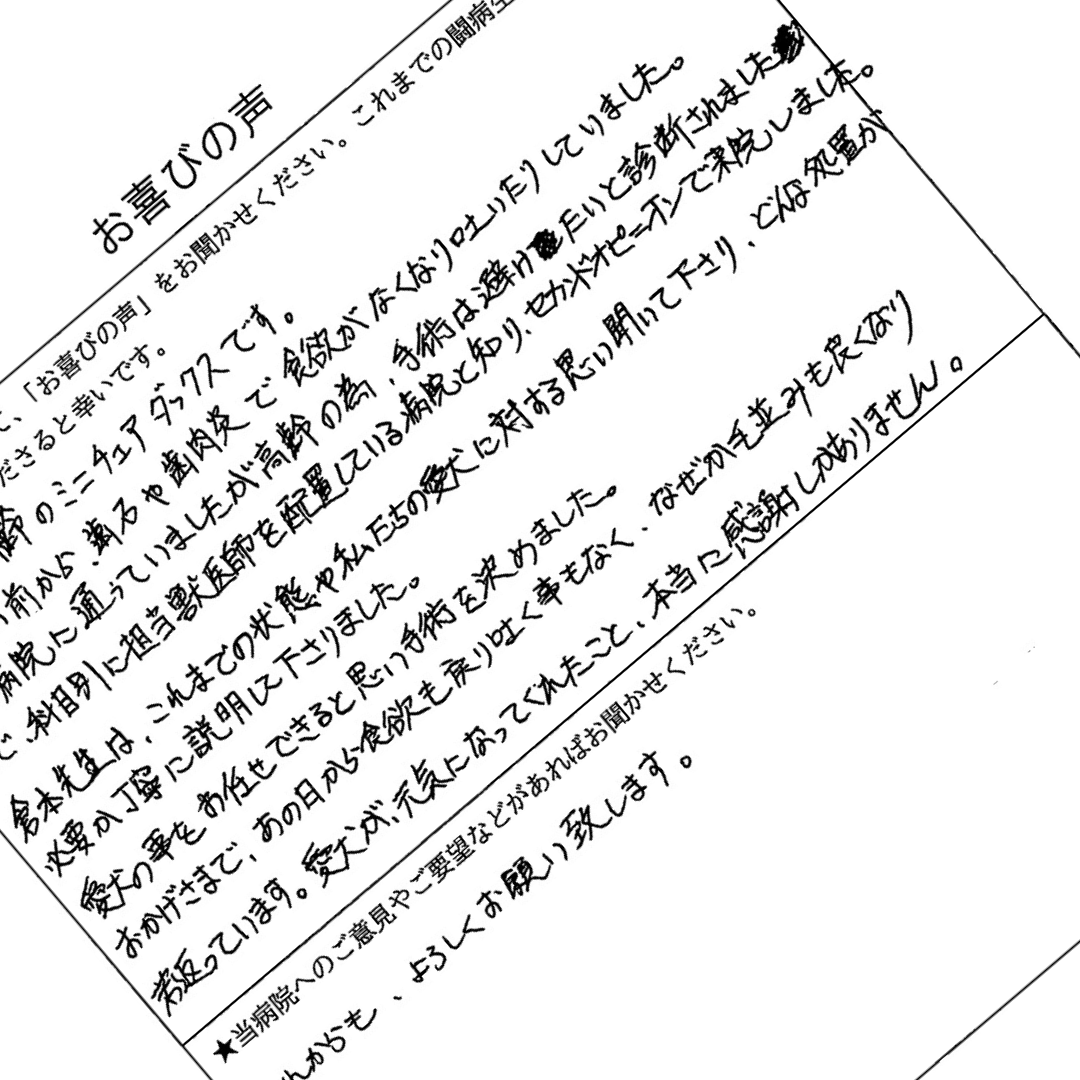 お喜びの声
、「お喜びの声」をお聞かせください。これまでの闘病生
ださると幸いです。
齢のミニチュアダックスです。
前から、歯石や歯肉炎で食欲がなくなり吐いたりしていました。
病院に通っていましたが高齢の為、手術は避けたいと診断されました
で、科目別に担当獣医師を配置している病院と知り、セカンドオピニオンで来院しました。
倉本先生は、これまでの状態や私たちの愛犬に対する思い聞いて下さり、どんな処置が
必要か丁寧に説明して下さりました。
愛犬の事をお任せできると思い手術を決めました。
おかげさまで、あの日から食欲も戻り吐く事もなく、なぜか毛並みも良くなり
若返っています。愛犬が、元気になってくれたこと、本当に感謝しかありません。
★当病院へのご意見やご要望などがあればお聞かせください。
れからも、よろしくお願い致します。